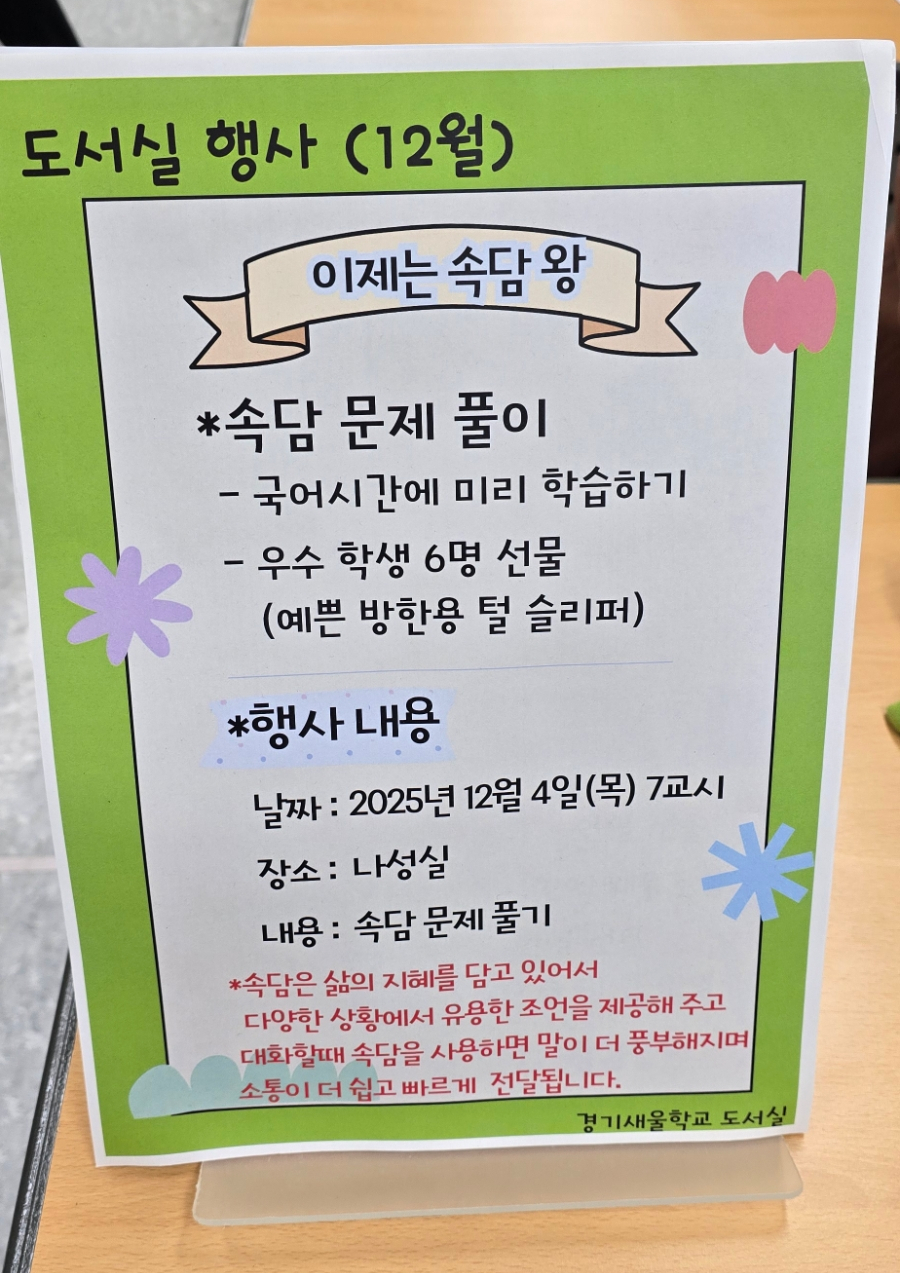 도서실 행사 (12월)
이제는 속담 왕
*속담 문제 풀이
- 국어시간에 미리 학습하기
- 우수 학생 6명 선물
(예쁜 방한용 털 슬리퍼)
*행사 내용
날짜 : 2025년 12월 4일(목) 7교시
장소 : 나성실
내용 : 속담 문제 풀기
*속담은 삶의 지혜를 담고 있어서
다양한 상황에서 유용한 조언을 제공해 주고
대화할때 속담을 사용하면 말이 더 풍부해지며
소통이 더 쉽고 빠르게 전달됩니다.
경기새울학교 도서실